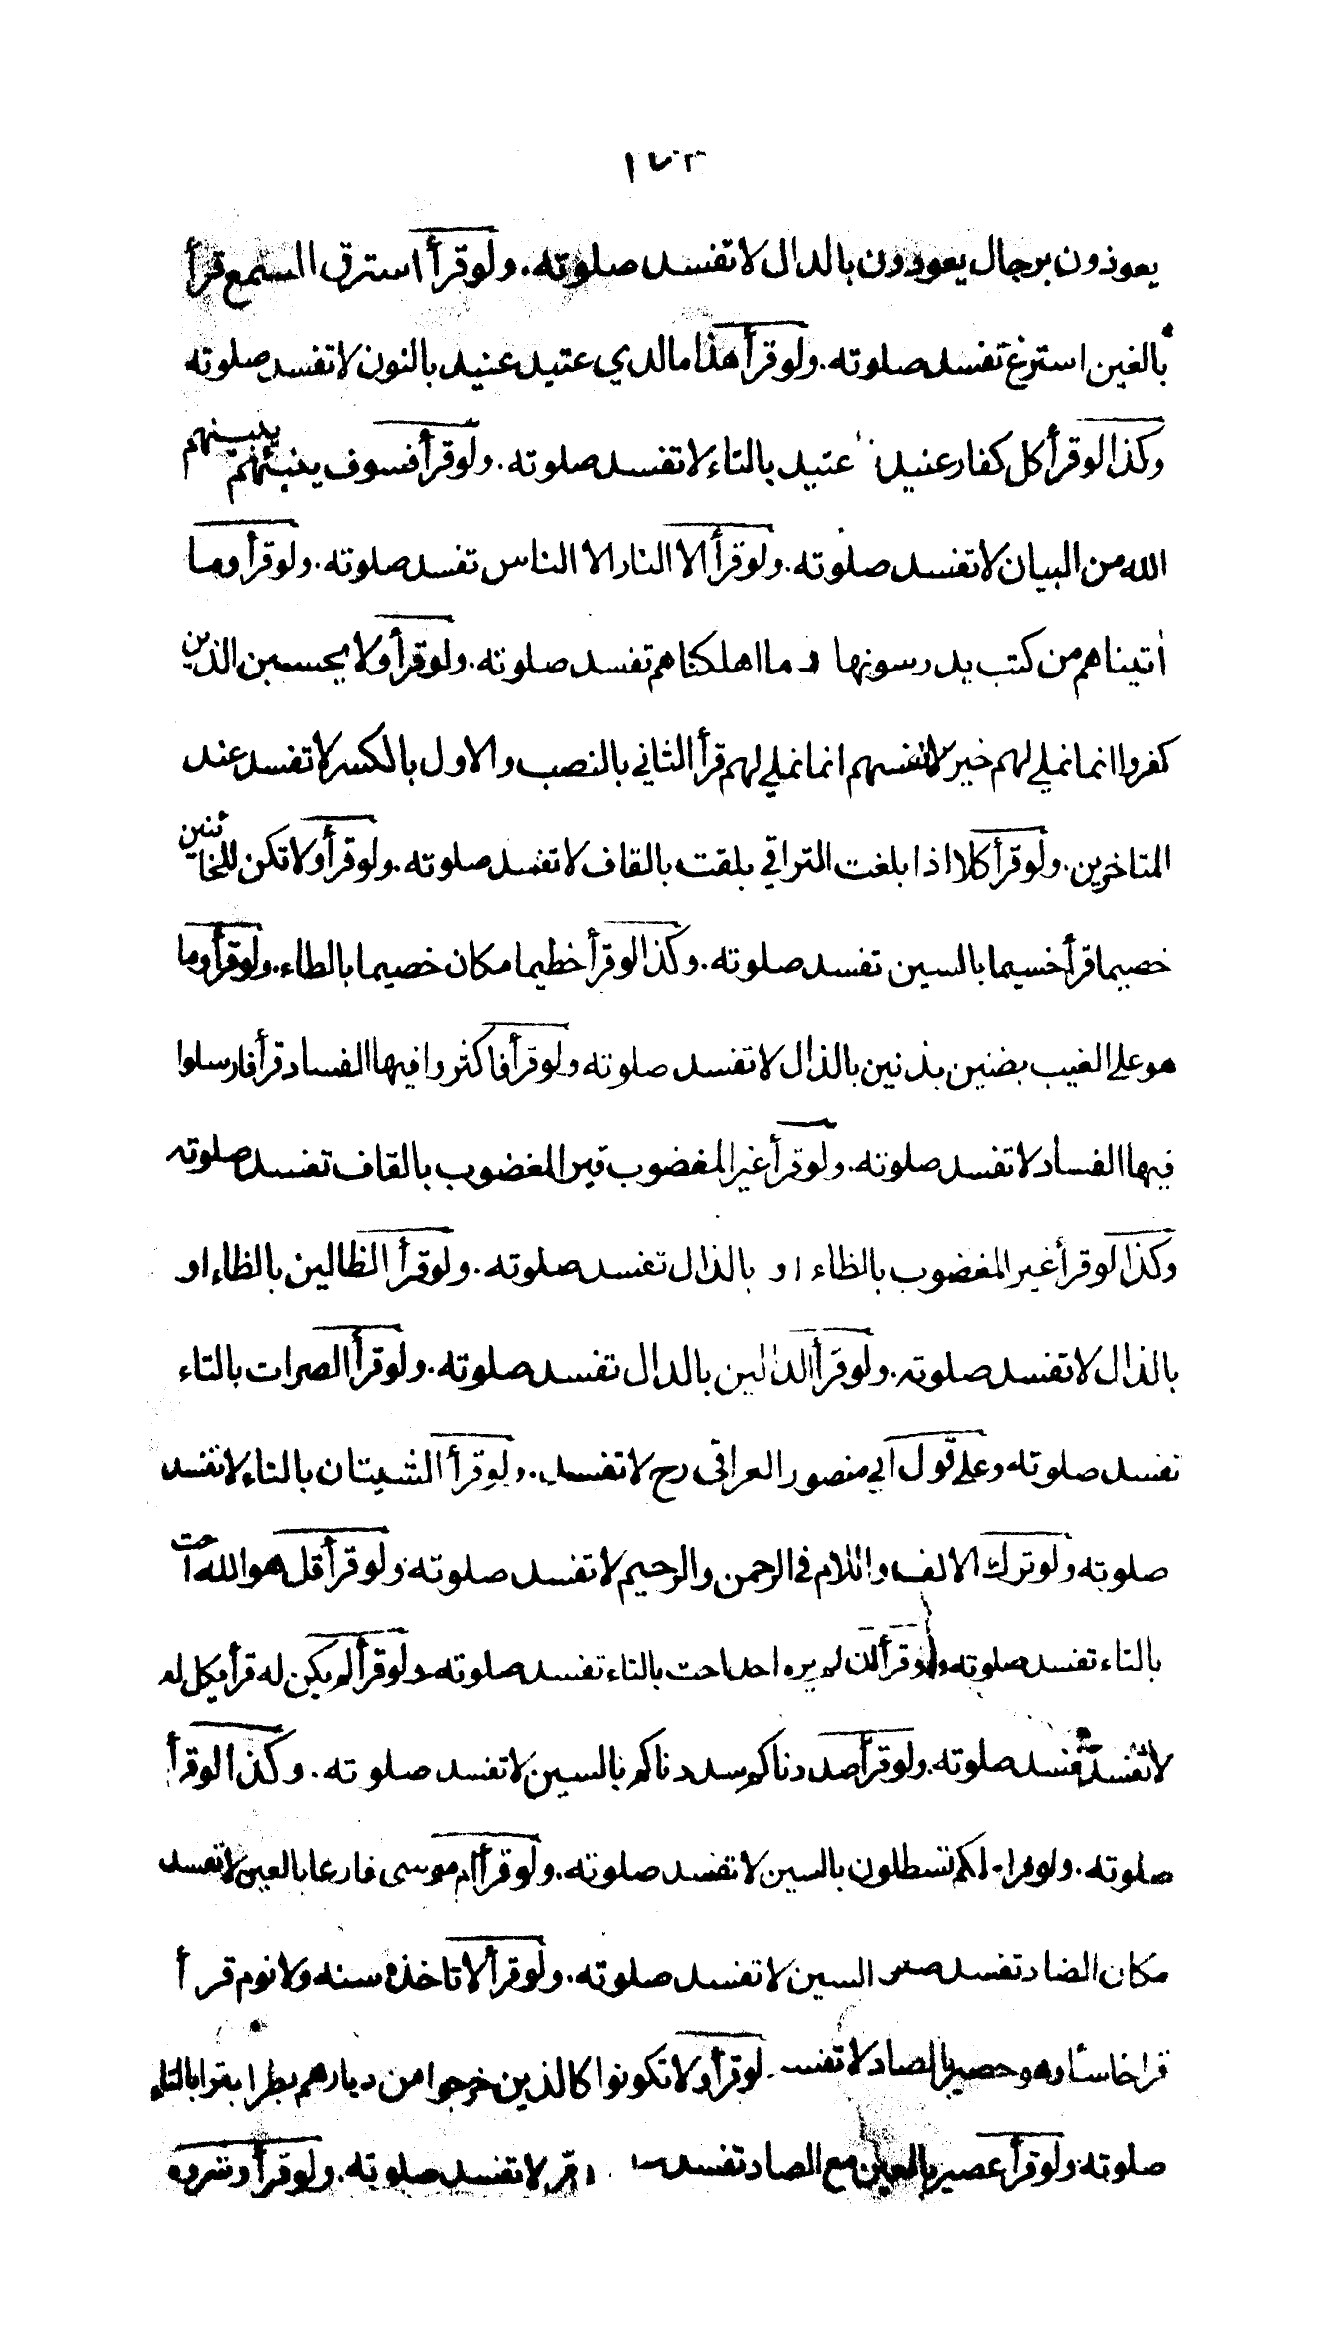 ١٧٢
يعوذون برجال يعودون بالدال لا تفسد صلوته. ولو قرأ استرق السمع قرأ
بالغين استرغ تفسد صلوته. ولو قرأ هذا مالدي عتيد عنيد بالنون لا تفسد صلوته
وكذا لو قرأ كل كفار عنيد عتيد بالتاء لا تفسد صلوته. ولو قرأ فسوف ينبئهم يبينهم
الله من البيان لا تفسد صلوته. ولو قرأ الا النار الا الناس تفسد صلوته. ولو قرأ وما
اتيناهم من كتب يدرسونها وما اهلكناهم تفسد صلوته. ولو قرأ ولا يحسبن الذين
كفروا انما نملي لهم خير لانفسهم انما نملي لهم قرأ الثاني بالنصب والاول بالكسر لا تفسد عند
المتاخرين. ولو قرأ كلا اذا بلغت التراقي بلقت بالقاف لا تفسد صلوته. ولو قرأ ولا تكن للخائنين
خصيما قرأ خسيما بالسين تفسد صلوته. وكذا لو قرأ خطيما مكان خصيما بالطاء. ولو قرأ وما
هو على الغيب بضنين بذنين بالذال لا تفسد صلوته ولو قرأ فاكثروا فيها الفساد قرأ فارسلوا
فيها الفساد لا تفسد صلوته. ولو قرأ غير المغضوب قير المغضوب بالقاف تفسد صلوته
وكذا لو قرأ غير المغضوب بالظاء او بالذال تفسد صلوته. ولو قرأ الظالين بالظاء او
بالذال لا تفسد صلوته. ولو قرأ الدالين بالدال تفسد صلوته. ولو قرأ الصرات بالتاء
تفسد صلوته وعلى قول ابي منصور العراقي رح لا تفسد. ولو قرأ الشيتان بالتاء لا تفسد
صلوته ولو ترك الالف واللام في الرحمن والرحيم لا تفسد صلوته ولو قرأ قل هو الله احت
بالتاء تفسد صلوته ولو قرأ ان لم يره احد احت بالتاء تفسد صلوته ولو قرأ لم يكن له قرأ يكل له
لا تفسد تفسد صلوته. ولو قرأ صددناكم سددناكم بالسين لا تفسد صلوته. وكذا لو قرأ
صلوته. ولو قرا لكم تسطلون بالسين لا تفسد صلوته. ولو قرأ ام موسى فارعا بالعين لا تفسد
مكان الضاد تفسد السين لا تفسد صلوته. ولو قرأ لا تاخذه سنه ولا نوم قرأ
قرا خاسئا وهو حصير بالصاد لا تفسد. لو قرأ ولا تكونوا كالذين خرجوا من ديارهم بطرا بقرا بالتاء
صلوته ولو قرأ عصير بالعين مع الصاد تفسد لا تفسد صلوته. ولو قرأ وشروه